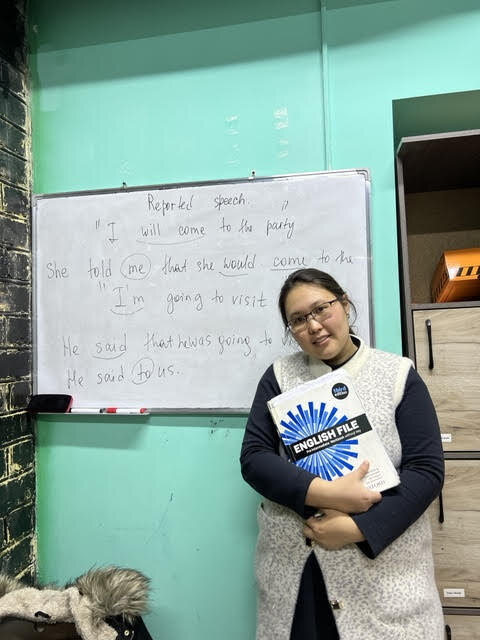 Reported speech.
"I will come to the party"
She told me that she would come to the
"I'm going to visit
He said that he was going to
He said to us.
third edition
ENGLISH FILE
OXFORD